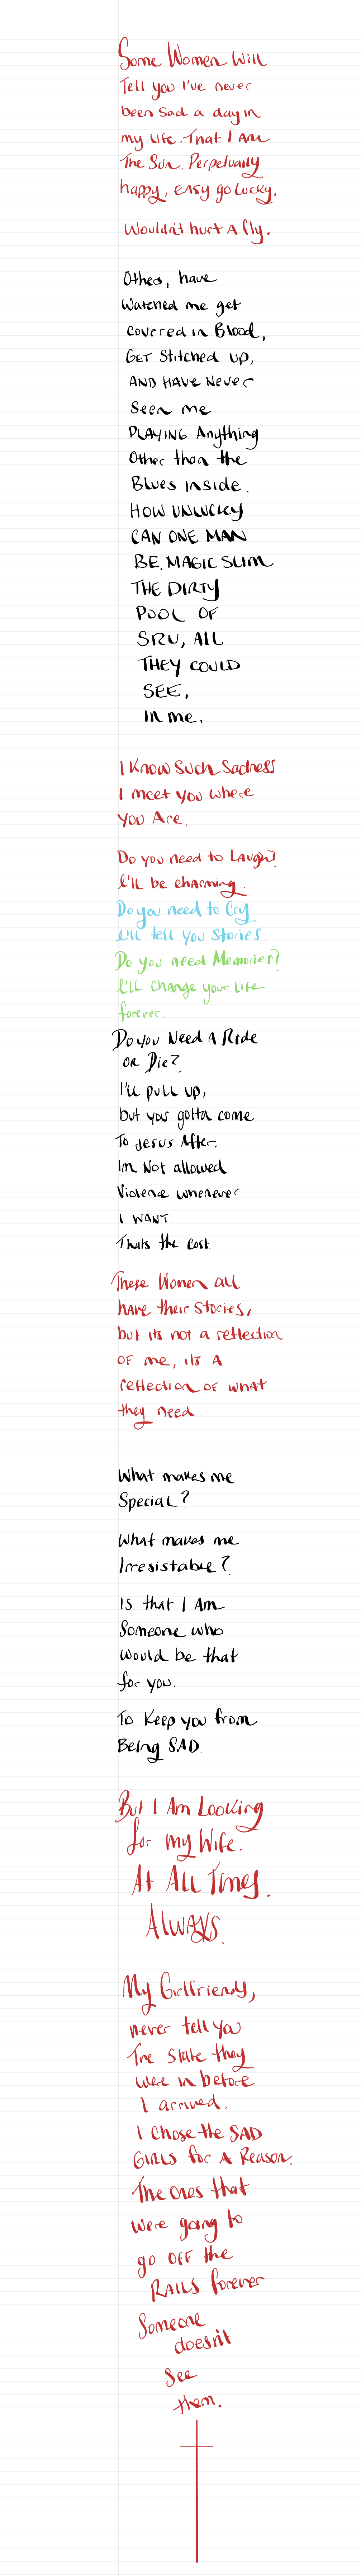 Some Women Will
Tell you I've never
been sad a day in
my life. That I Am
The Sun. Perpetually
happy, EASY go lucky,
Wouldn't hurt A fly.
Others, have
Watched me get
covered in Blood,
GET Stitched up,
AND HAVE Never
Seen me
PLAYING Anything
Other than the
Blues inside.
HOW UNLUCKY
CAN ONE MAN
BE. MAGIC SLIM
THE DIRTY
POOL OF
SRV, ALL
THEY COULD
SEE,
In me.
I Know Such Sadness
I meet you where
you Are.
Do you need to Laugh?
I'll be charming.
Do you need to Cry
I'll tell you Stories.
Do you need Memories?
I'll change your life
forever.
Do you Need A Ride
OR Die?
I'll pull up,
but you gotta come
To Jesus After.
Im Not allowed
Violence whenever
I WANT.
Thats the Cost.
These Women all
have their stories,
but its not a reflection
OF me, its A
reflection OF what
they need.
What makes me
Special?
What makes me
Irresistable?
Is that I Am
Someone who
would be that
for you.
To Keep you from
Being SAD.
But I Am Looking
for my Wife.
At All Times.
ALWAYS.
My Girlfriends,
never tell you
The state they
were in before
I arrived.
I chose the SAD
GIRLS for A Reason.
The ones that
were going to
go OFF the
RAILS forever
Someone
doesn't
See
them.